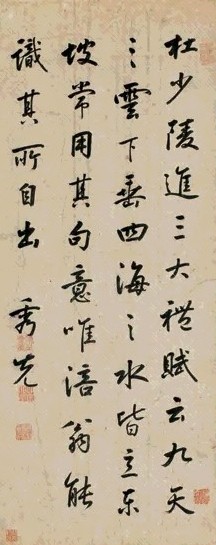 杜少陵進三大禮賦云九天
之雲下垂四海之水皆立東
坡常用其句意唯涪翁能
識其所自出 秀先